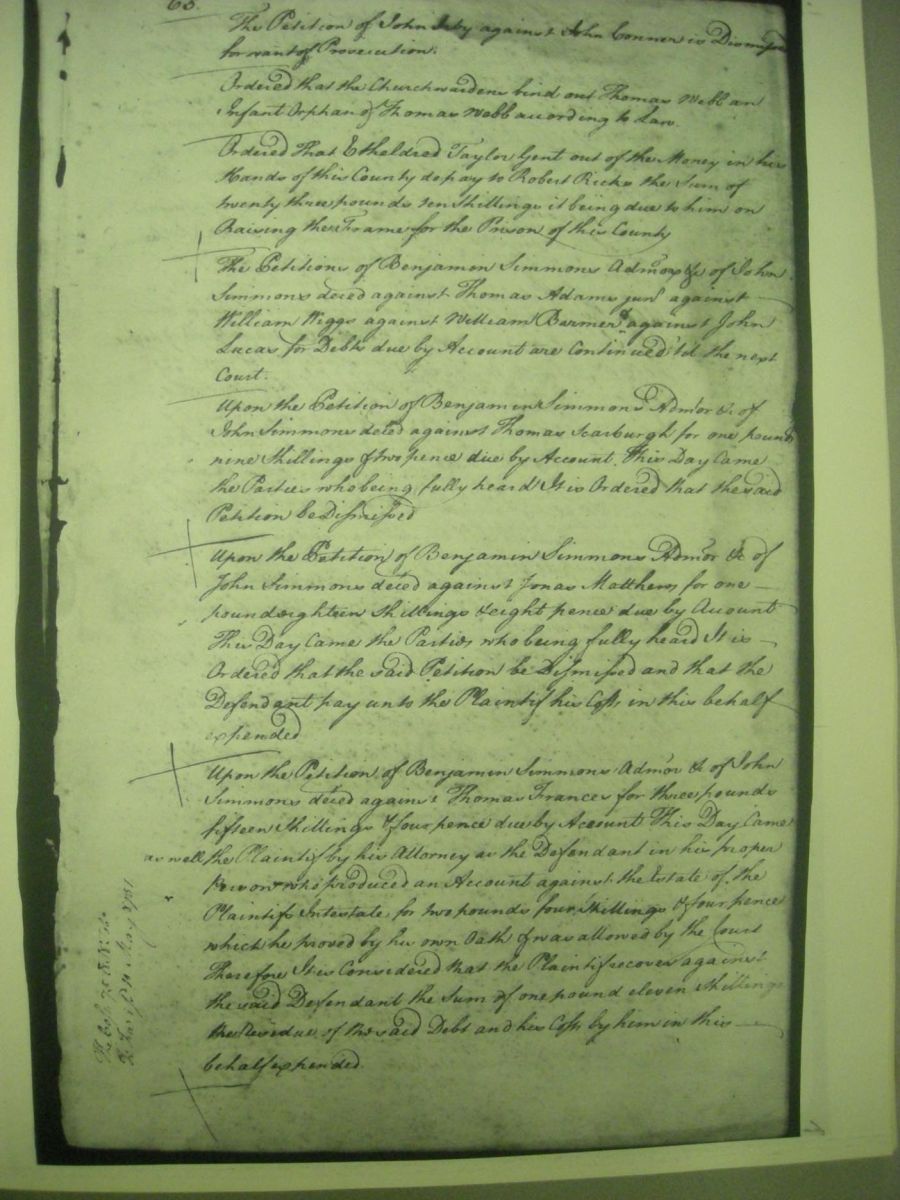 63.
The Petition of John Irby against John Conner is Dismissed
for want of Prosecution.
Ordered that the Churchwardens bind out Thomas Webb an
Infant Orphan of Thomas Webb according to Law
Ordered That Etheldred Taylor Gent out of the Money in his
Hands of this County do pay to Robert Ricks the Sum of
twenty three pounds ten Shillings it being due to him on
Raising the Frame for the Prison of this County
The Petitions of Benjamin Simmons Admor &c of John
Simmons deced against Thomas Adams junr against
William Wiggs against William Barmer & against John
Lucas for Debts due by Account are Continued 'til the next
Court.
Upon the Petition of Benjamin Simmons Admor &c of
John Simmons deced against Thomas Scarburgh for one pound
nine Shillings & two pence due by Account. This Day Came
the Parties who being fully heard It is Ordered that the said
Petition be Dismissed
Upon the Petition of Benjamin Simmons Admor &c of
John Simmons deced against Jonas Matthews for one
pound eighteen Shillings & eight pence due by Account
This Day Came the Parties who being fully heard It is
Ordered that the said Petition be Dismissed and that the
Defendant pay unto the Plaintif his Costs in this behalf
expended
Upon the Petition of Benjamin Simmons Admor &c of John
Simmons deced against Thomas Frances for three pounds
fifteen Shillings & four pence due by Account This Day Came
as well the Plaintif by his Attorney as the Defendant in his proper
Person who produced an Account against the Estate of the
Plaintifs Intestate for two pounds four Shillings & four pence
which he proved by his own Oath & was allowed by the Court
Therefore It is Considered that the Plaintif recover against
the said Defendant the Sum of one pound eleven Shillings
the Residue of the said Debt and his Costs by him in this
behalf expended.
May 1751